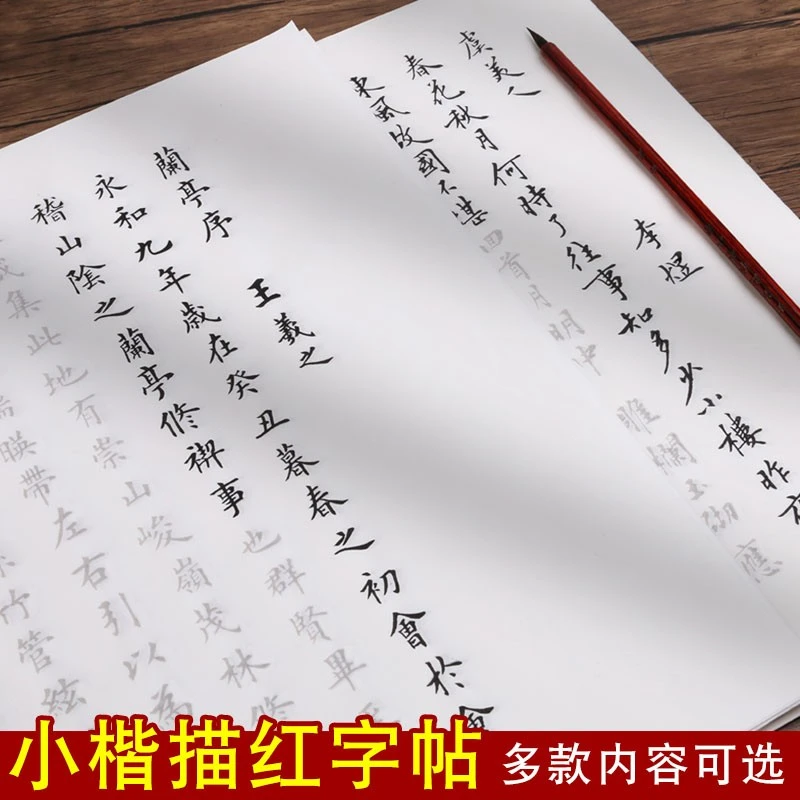 虞美人
李煜
春花秋月何時了往事知多少小樓昨夜
東風故國不堪回首月明中 雕欄玉砌應
蘭亭序
王羲之
永和九年歲在癸丑暮春之初會於會
稽山陰之蘭亭修禊事也群賢畢至
咸集此地有崇山峻嶺茂林修
湍暎帶左右引以為
竹管絃
小楷描红字帖
多款内容可选